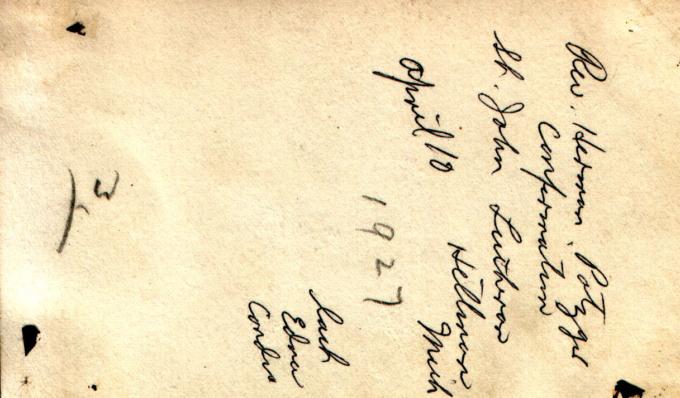 Rev. Herman Potzger
Confirmation
St. John Lutheran
Hillman Mich
April 10
1927
back
Edna
3